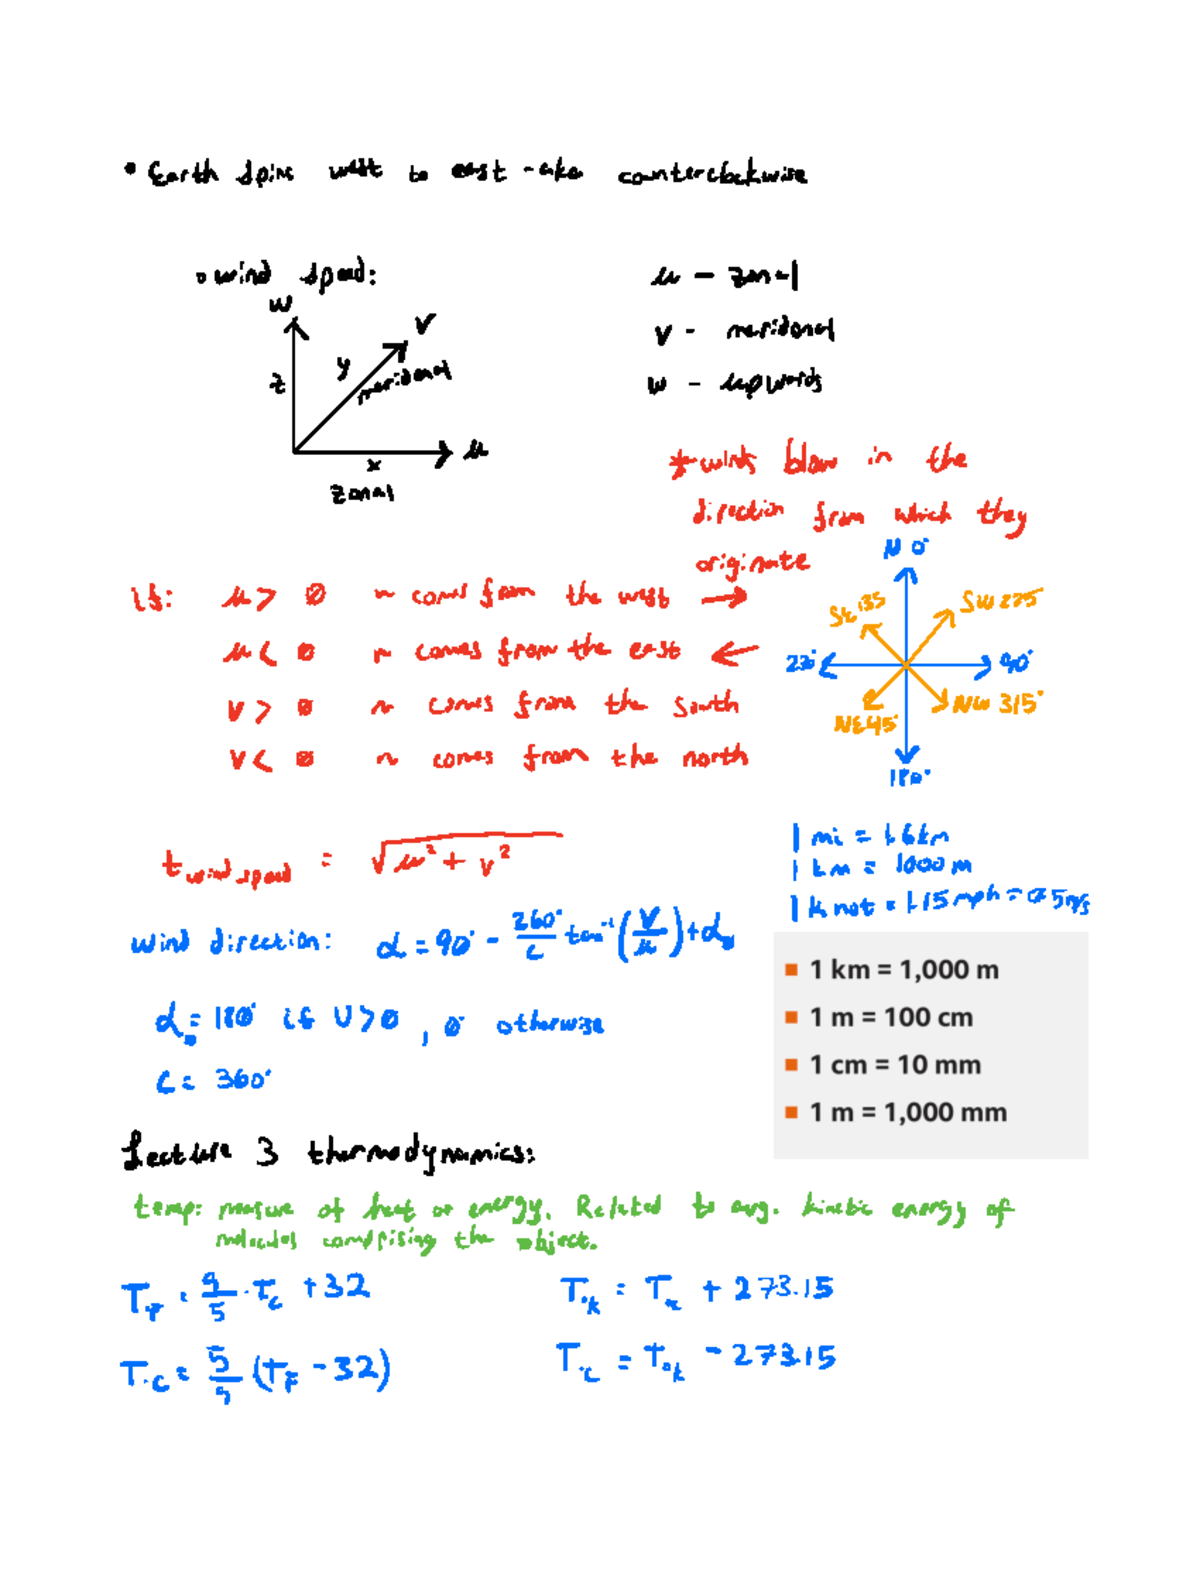 • Earth spins west to east - aka counterclockwise
o wind speed:
w
v
z
y
meridonal
u
x
zonal
u - zonal
v - meridonal
w - upwards
* winds blow in the
direction from which they
originate
if: u > 0 ~ comes from the west →
u < 0 ~ comes from the east ←
v > 0 ~ comes from the south
v < 0 ~ comes from the north
N 0°
SE 135
SW 225
90°
NE 45°
NW 315°
180°
t wind speed = √u² + v²
1 mi = 1.6 km
1 km = 1000 m
1 knot = 1.15 mph = 0.5 m/s
wind direction: α = 90° - 360°/c tan⁻¹(v/u) + α₀
α₀ = 180° if U > 0, 0° otherwise
c = 360°
▪ 1 km = 1,000 m
▪ 1 m = 100 cm
▪ 1 cm = 10 mm
▪ 1 m = 1,000 mm
Lecture 3 thermodynamics:
temp: measure of heat or energy. Related to avg. kinetic energy of
molecules comprising the object.
T°F = 9/5 · T°C + 32
T°K = T°C + 273.15
T°C = 5/9 (T°F - 32)
T°C = T°K - 273.15